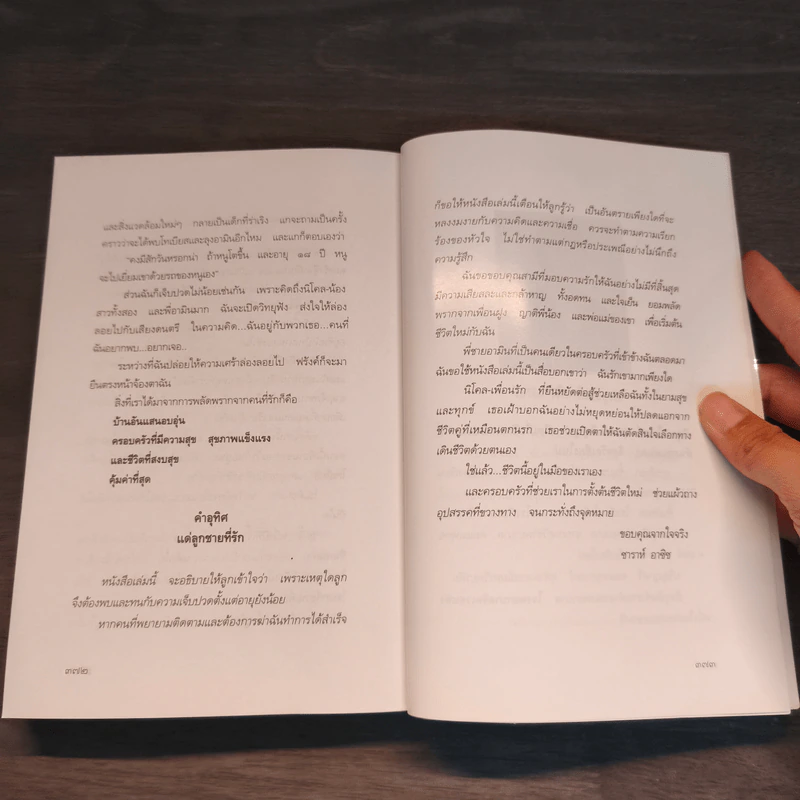 และสิ่งแวดล้อมใหม่ๆ กลายเป็นเด็กที่ร่าเริง แกจะถามเป็นครั้ง
คราวว่าจะได้พบโทเบียสและลุงอามินอีกไหม และแกก็ตอบเองว่า
"คงมีสักวันหรอกน่า ถ้าหนูโตขึ้น และอายุ ๑๘ ปี หนู
จะไปเยี่ยมเขาด้วยรถของหนูเอง"
ส่วนฉันก็เจ็บปวดไม่น้อยเช่นกัน เพราะคิดถึงนิโคล-น้อง
สาวทั้งสอง และพี่อามินมาก ฉันจะเปิดวิทยุฟัง ส่งใจให้ล่อง
ลอยไปกับเสียงดนตรี ในความคิด...ฉันอยู่กับพวกเธอ...คนที่
ฉันอยากพบ...อยากเจอ..
ระหว่างที่ฉันปล่อยให้ความเศร้าล่องลอยไป ฟรังค์ก็จะมา
ยืนตรงหน้าจ้องตาฉัน
สิ่งที่เราได้มาจากการพลัดพรากจากคนที่รักก็คือ
บ้านอันแสนอบอุ่น
ครอบครัวที่มีความสุข สุขภาพแข็งแรง
และชีวิตที่สงบสุข
คุ้มค่าที่สุด
คำอุทิศ
แด่ลูกชายที่รัก
หนังสือเล่มนี้ จะอธิบายให้ลูกเข้าใจว่า เพราะเหตุใดลูก
จึงต้องพบและทนกับความเจ็บปวดตั้งแต่อายุยังน้อย
หากคนที่พยายามติดตามและต้องการฆ่าฉันทำการได้สำเร็จ
๓๗๒
ก็ขอให้หนังสือเล่มนี้เตือนให้ลูกรู้ว่า เป็นอันตรายเพียงใดที่จะ
หลงงมงายกับความคิดและความเชื่อ ควรจะทำตามความเรียก
ร้องของหัวใจ ไม่ใช่ทำตามแต่กฎหรือประเพณีอย่างไม่นึกถึง
ความรู้สึก
ฉันขอขอบคุณสามีที่มอบความรักให้ฉันอย่างไม่มีที่สิ้นสุด
มีความเสียสละและกล้าหาญ ทั้งอดทน และใจเย็น ยอมพลัด
พรากจากเพื่อนฝูง ญาติพี่น้อง และพ่อแม่ของเขา เพื่อเริ่มต้น
ชีวิตใหม่กับฉัน
พี่ชายอามินที่เป็นคนเดียวในครอบครัวที่เข้าข้างฉันตลอดมา
ฉันขอใช้หนังสือเล่มนี้เป็นสื่อบอกเขาว่า ฉันรักเขามากเพียงใด
นิโคล-เพื่อนรัก ที่ยืนหยัดต่อสู้ช่วยเหลือฉันทั้งในยามสุข
และทุกข์ เธอเฝ้าบอกฉันอย่างไม่หยุดหย่อนให้ปลดแอกจาก
ชีวิตคู่ที่เหมือนตกนรก เธอช่วยเปิดตาให้ฉันตัดสินใจเลือกทาง
เดินชีวิตด้วยตนเอง
ใช่แล้ว...ชีวิตนี้อยู่ในมือของเราเอง
และครอบครัวที่ช่วยเราในการตั้งต้นชีวิตใหม่ ช่วยแผ้วถาง
อุปสรรคที่ขวางทาง จนกระทั่งถึงจุดหมาย
ขอบคุณจากใจจริง
ซาราห์ อาซิซ
๓๗๓